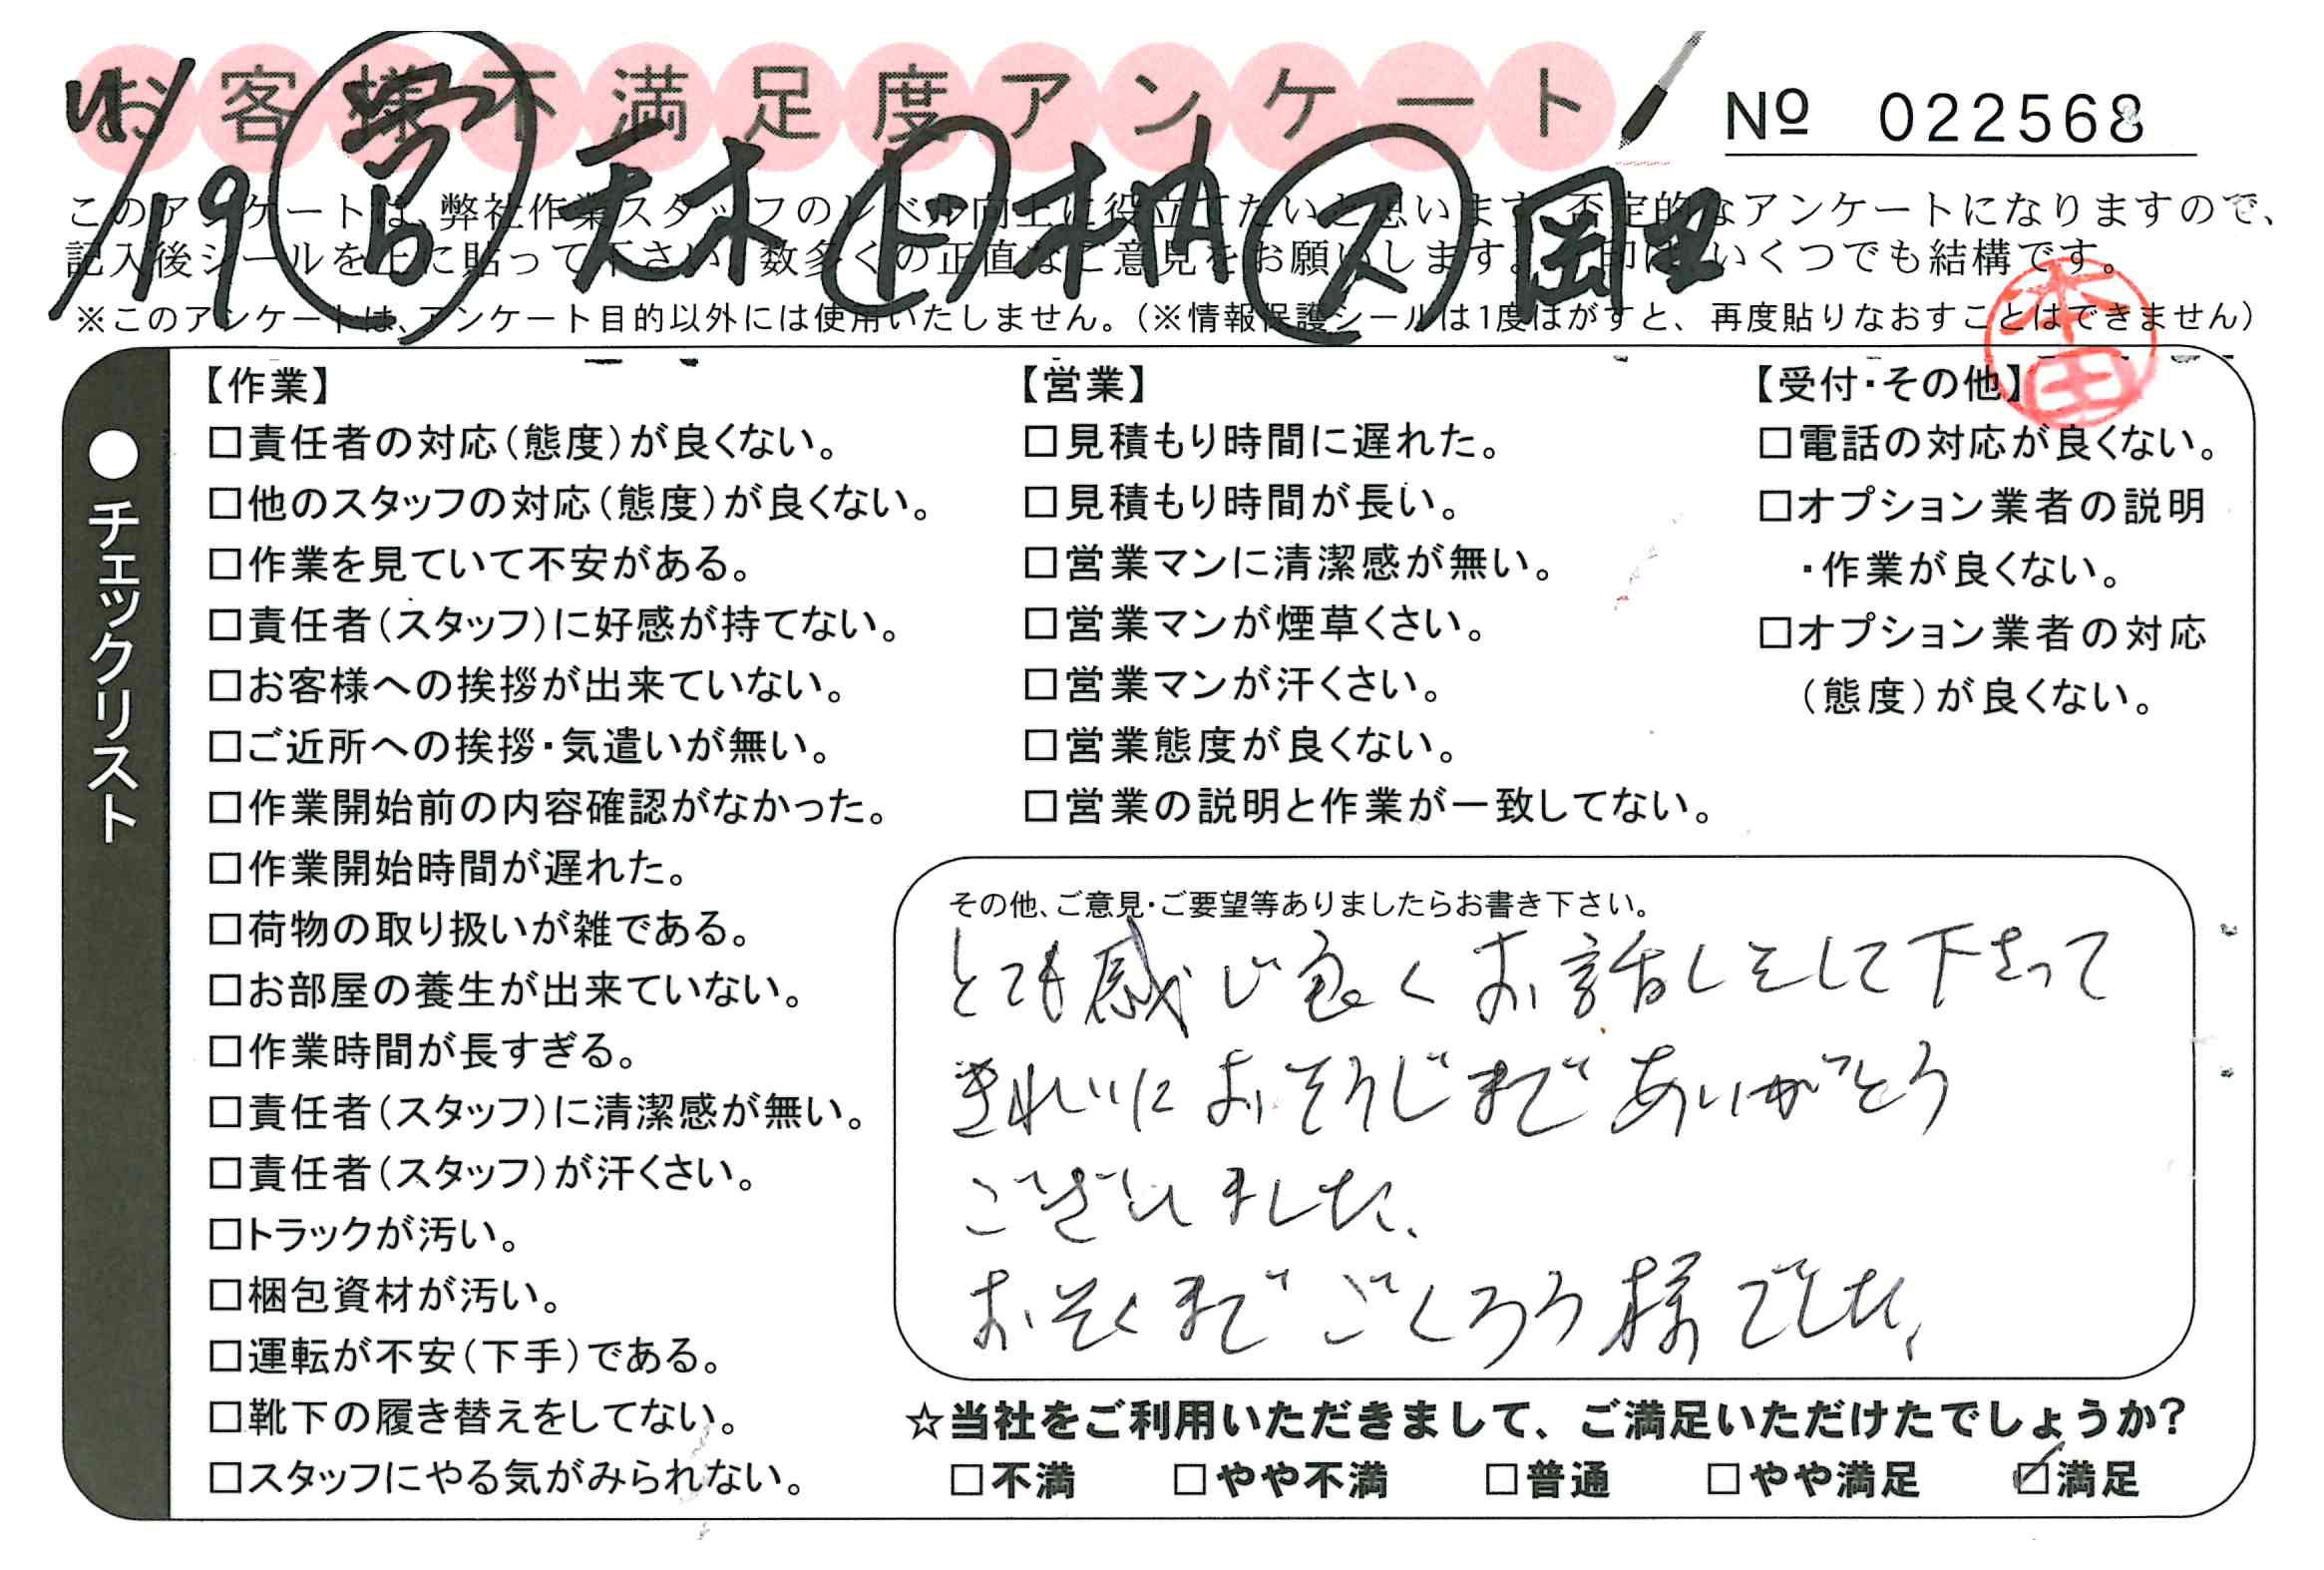 お客様不満足度アンケート
Nº 022568
/19 営 天木 ト 木村 ス 岡
このアンケートは、弊社作業スタッフのレベル向上に役立てたいと思います。否定的なアンケートになりますので、
記入後シールを上に貼って下さい。数多くの正直なご意見をお願いします。□印は、いくつでも結構です。
※このアンケートは、アンケート目的以外には使用いたしません。（※情報保護シールは1度はがすと、再度貼りなおすことはできません）
本田
●チェックリスト
【作業】
□責任者の対応（態度）が良くない。
□他のスタッフの対応（態度）が良くない。
□作業を見ていて不安がある。
□責任者（スタッフ）に好感が持てない。
□お客様への挨拶が出来ていない。
□ご近所への挨拶・気遣いが無い。
□作業開始前の内容確認がなかった。
□作業開始時間が遅れた。
□荷物の取り扱いが雑である。
□お部屋の養生が出来ていない。
□作業時間が長すぎる。
□責任者（スタッフ）に清潔感が無い。
□責任者（スタッフ）が汗くさい。
□トラックが汚い。
□梱包資材が汚い。
□運転が不安（下手）である。
□靴下の履き替えをしてない。
□スタッフにやる気がみられない。
【営業】
□見積もり時間に遅れた。
□見積もり時間が長い。
□営業マンに清潔感が無い。
□営業マンが煙草くさい。
□営業マンが汗くさい。
□営業態度が良くない。
□営業の説明と作業が一致してない。
【受付・その他】
□電話の対応が良くない。
□オプション業者の説明
・作業が良くない。
□オプション業者の対応
（態度）が良くない。
その他、ご意見・ご要望等ありましたらお書き下さい。
とても感じ良くお話しをして下さって
きれいにおそうじまでありがとう
ございました。
おそくまでごくろう様でした。
☆当社をご利用いただきまして、ご満足いただけたでしょうか?
□不満 □やや不満 □普通 □やや満足 ☑満足